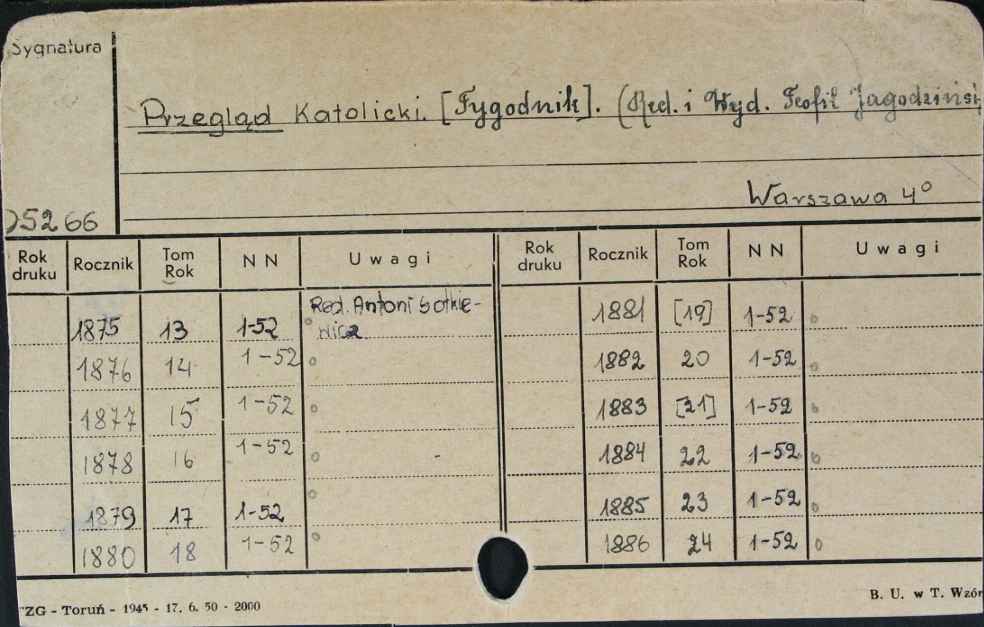 Sygnatura
Przegląd Katolicki. [Tygodnik]. (Red. i Wyd. Teofil Jagodzińsk
Warszawa 4°
05266
Rok druku Rocznik Tom Rok NN Uwagi Rok druku Rocznik Tom Rok NN Uwagi
1875 13 1-52 Red. Antoni 1881 [19] 1-52
1876 14 1-52 1882 20 1-52
1877 15 1-52 1883 [21] 1-52
1878 16 1-52 1884 22 1-52
1879 17 1-52 1885 23 1-52
1880 18 1-52 1886 24 1-52
ZG - Toruń - 1945 - 17. 6. 50 - 2000
B. U. w T. Wzór